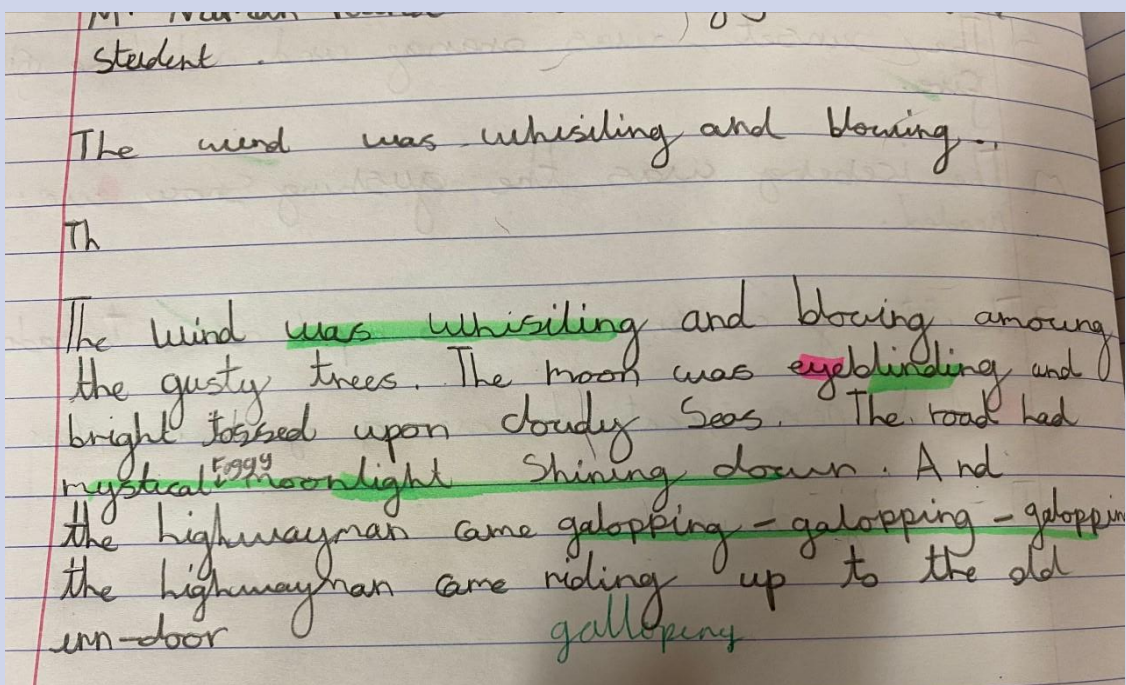 student.
The wind was whisiling and blowing..
Th
The wind was whisiling and blowing amoung
the gusty trees. The moon was eyeblinding and
bright tossed upon cloudy seas. The road had
mystical foggy moonlight shining down. And
the highwayman came galopping - galopping - galoppin
the highwayman came riding up to the old
inn-door
galloping